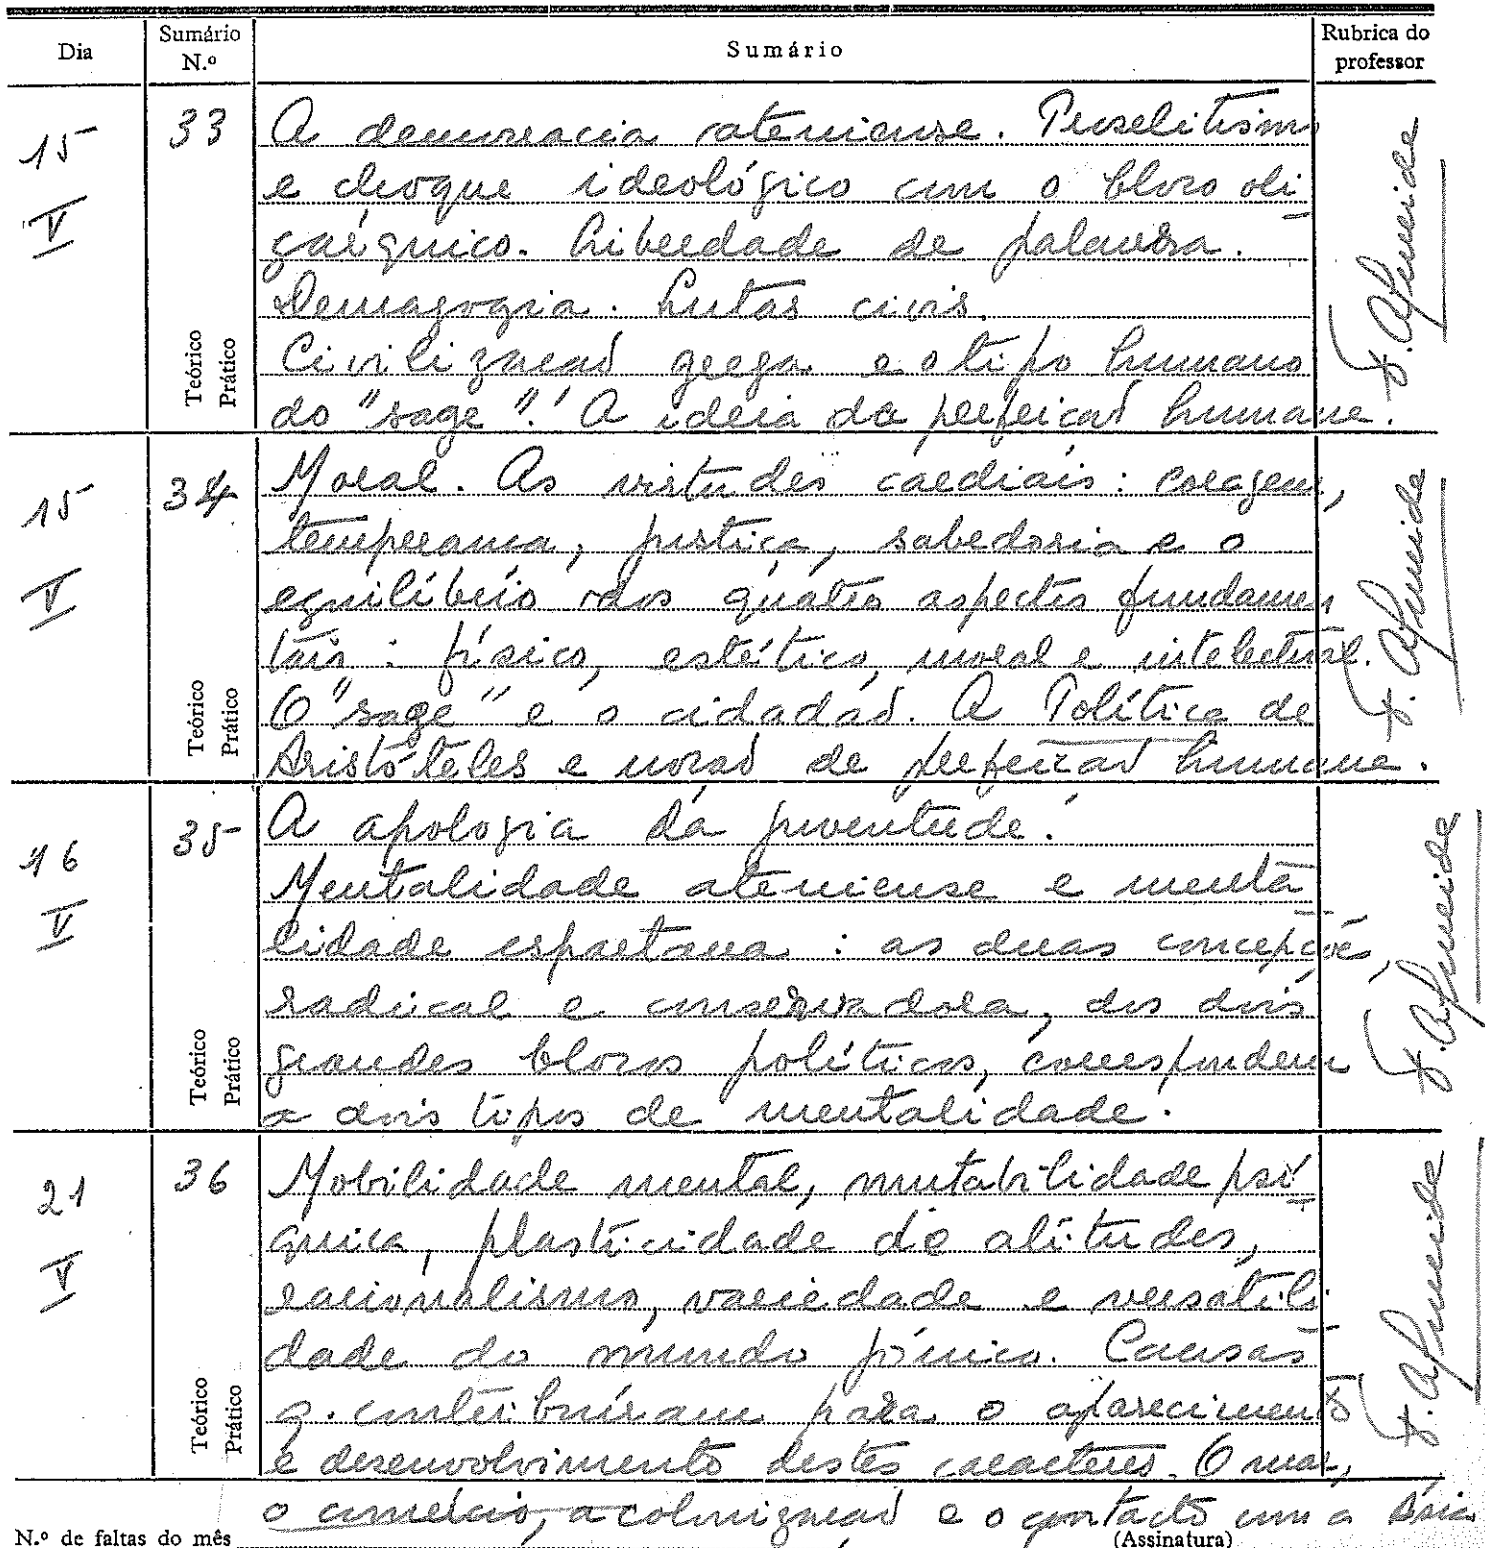 Dia
Sumário N.º
Sumário
Rubrica do professor
15
V
33
A democracia ateniense. Proselitismo
e choque ideológico com o bloco oli
gárquico. Liberdade de palavra.
Demagogia. Lutas civis.
Civilização grega e o tipo humano
do "sage". A ideia da perfeição humana.
Teórico
Prático
F. Almeida
15
V
34
Moral. As virtudes cardiais: coragem,
temperança, justiça, sabedoria e o
equilíbrio dos quatro aspectos fundamen
tais: físico, estético, moral e intelectual.
O "sage" e o cidadão. A Política de
Aristóteles e noção de perfeição humana.
Teórico
Prático
F. Almeida
16
V
35
A apologia da juventude.
Mentalidade ateniense e menta
lidade espartana: as duas concepções,
radical e conservadora, dos dois
grandes blocos políticos, correspondem
a dois tipos de mentalidade.
Teórico
Prático
F. Almeida
21
V
36
Mobilidade mental, mutabilidade psí
quica, plasticidade de atitudes,
racionalismo, variedade e versatili
dade do mundo jónico. Causas
q. contribuíram para o aparecimento
e desenvolvimento destes caracteres. O mar,
o comércio, a colonização e o contacto com a Ásia
Teórico
Prático
F. Almeida
N.º de faltas do mês
(Assinatura)